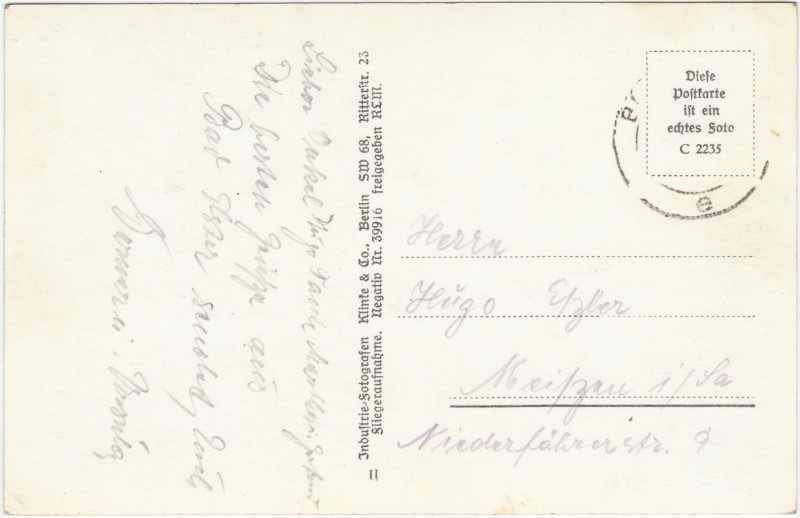 Lieber Onkel Hugo, Tante
Die besten Grüße aus
Bad Elster sendet Euch
Werner u.
Industrie-Fotografen Klinke & Co., Berlin SW 68, Ritterstr. 23
Fliegeraufnahme. Negativ Nr. 39916 freigegeben RLM.
II
Diese
Postkarte
ist ein
echtes Foto
C 2235
e
Herrn
Hugo Etzler
Meißen i/Sa
Niederfährerstr. 9